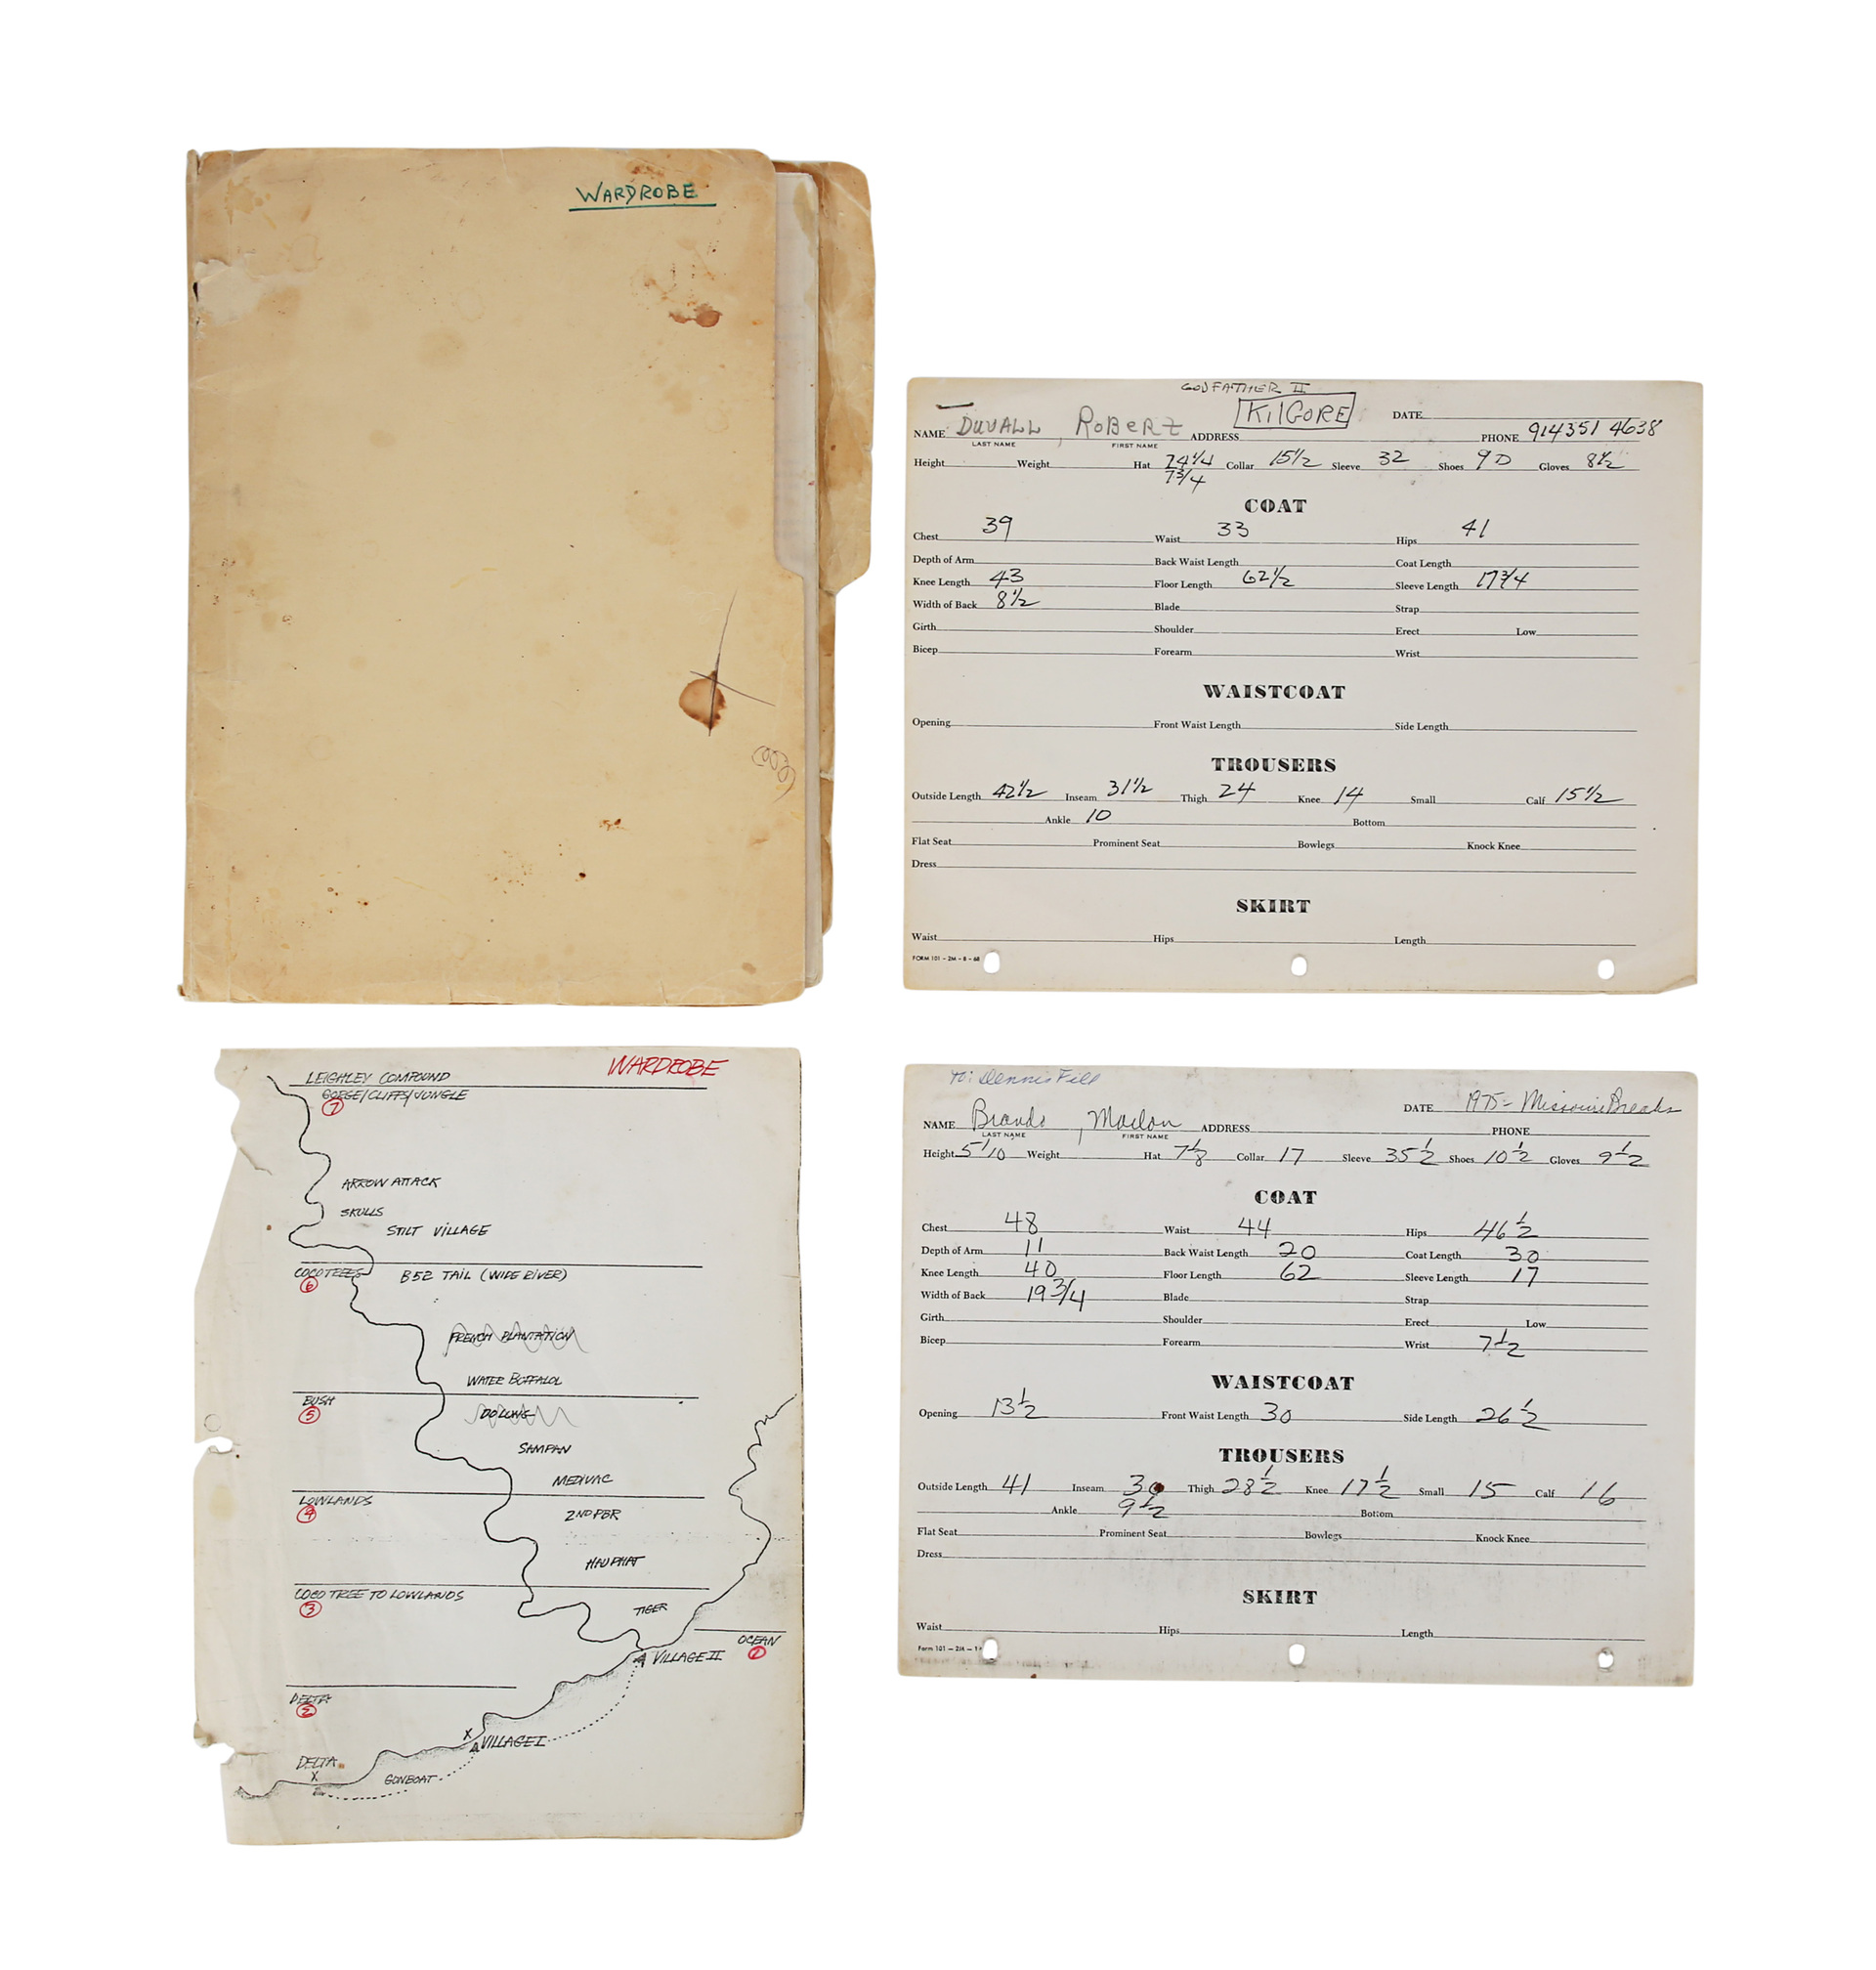 WARDROBE
GODFATHER II
KilGORE
DATE
NAME DUVALL, ROBERT ADDRESS PHONE 914351 4638
LAST NAME FIRST NAME
Height Weight Hat 7 4 1/4 Collar 15 1/2 Sleeve 32 Shoes 9 D Gloves 8 1/2
7 3/4
COAT
Chest 39 Waist 33 Hips 41
Depth of Arm Back Waist Length Coat Length
Knee Length 43 Floor Length 62 1/2 Sleeve Length 17 3/4
Width of Back 8 1/2 Blade Strap
Girth Shoulder Erect Low
Bicep Forearm Wrist
WAISTCOAT
Opening Front Waist Length Side Length
TROUSERS
Outside Length 42 1/2 Inseam 31 1/2 Thigh 24 Knee 14 Small Calf 15 1/2
Ankle 10 Bottom
Flat Seat Prominent Seat Bowlegs Knock Knee
Dress
SKIRT
Waist Hips Length
FORM 101 - 2M - 8 - 68
WARDROBE
LEIGHLEY COMPOUND
GORGE/CLIFFS/JUNGLE
7
ARROW ATTACK
SKULLS
STILT VILLAGE
COCO TREES B52 TAIL (WIDE RIVER)
6
FRENCH PLANTATION
WATER BUFFALOL
BUSH
5
DO LUNG
SAMPAN
MEDIVAC
LOWLANDS
4
2ND PBR
HAU PHAT
COCO TREE TO LOWLANDS
3
TIGER
OCEAN
1
VILLAGE II
DELTA
2
X
VILLAGE I
DELTA
X
GUNBOAT
to: Dennis Fill
DATE 1975 - Missouri Breaks
NAME Brando, Marlon ADDRESS PHONE
LAST NAME FIRST NAME
Height 5'10 Weight Hat 7 1/8 Collar 17 Sleeve 35 1/2 Shoes 10 1/2 Gloves 9 1/2
COAT
Chest 48 Waist 44 Hips 46 1/2
Depth of Arm 11 Back Waist Length 20 Coat Length 30
Knee Length 40 Floor Length 62 Sleeve Length 17
Width of Back 19 3/4 Blade Strap
Girth Shoulder Erect Low
Bicep Forearm Wrist 7 1/2
WAISTCOAT
Opening 13 1/2 Front Waist Length 30 Side Length 26 1/2
TROUSERS
Outside Length 41 Inseam 30 Thigh 28 1/2 Knee 17 1/2 Small 15 Calf 16
Ankle 9 1/2 Bottom
Flat Seat Prominent Seat Bowlegs Knock Knee
Dress
SKIRT
Waist Hips Length
Form 101 - 2M - 1